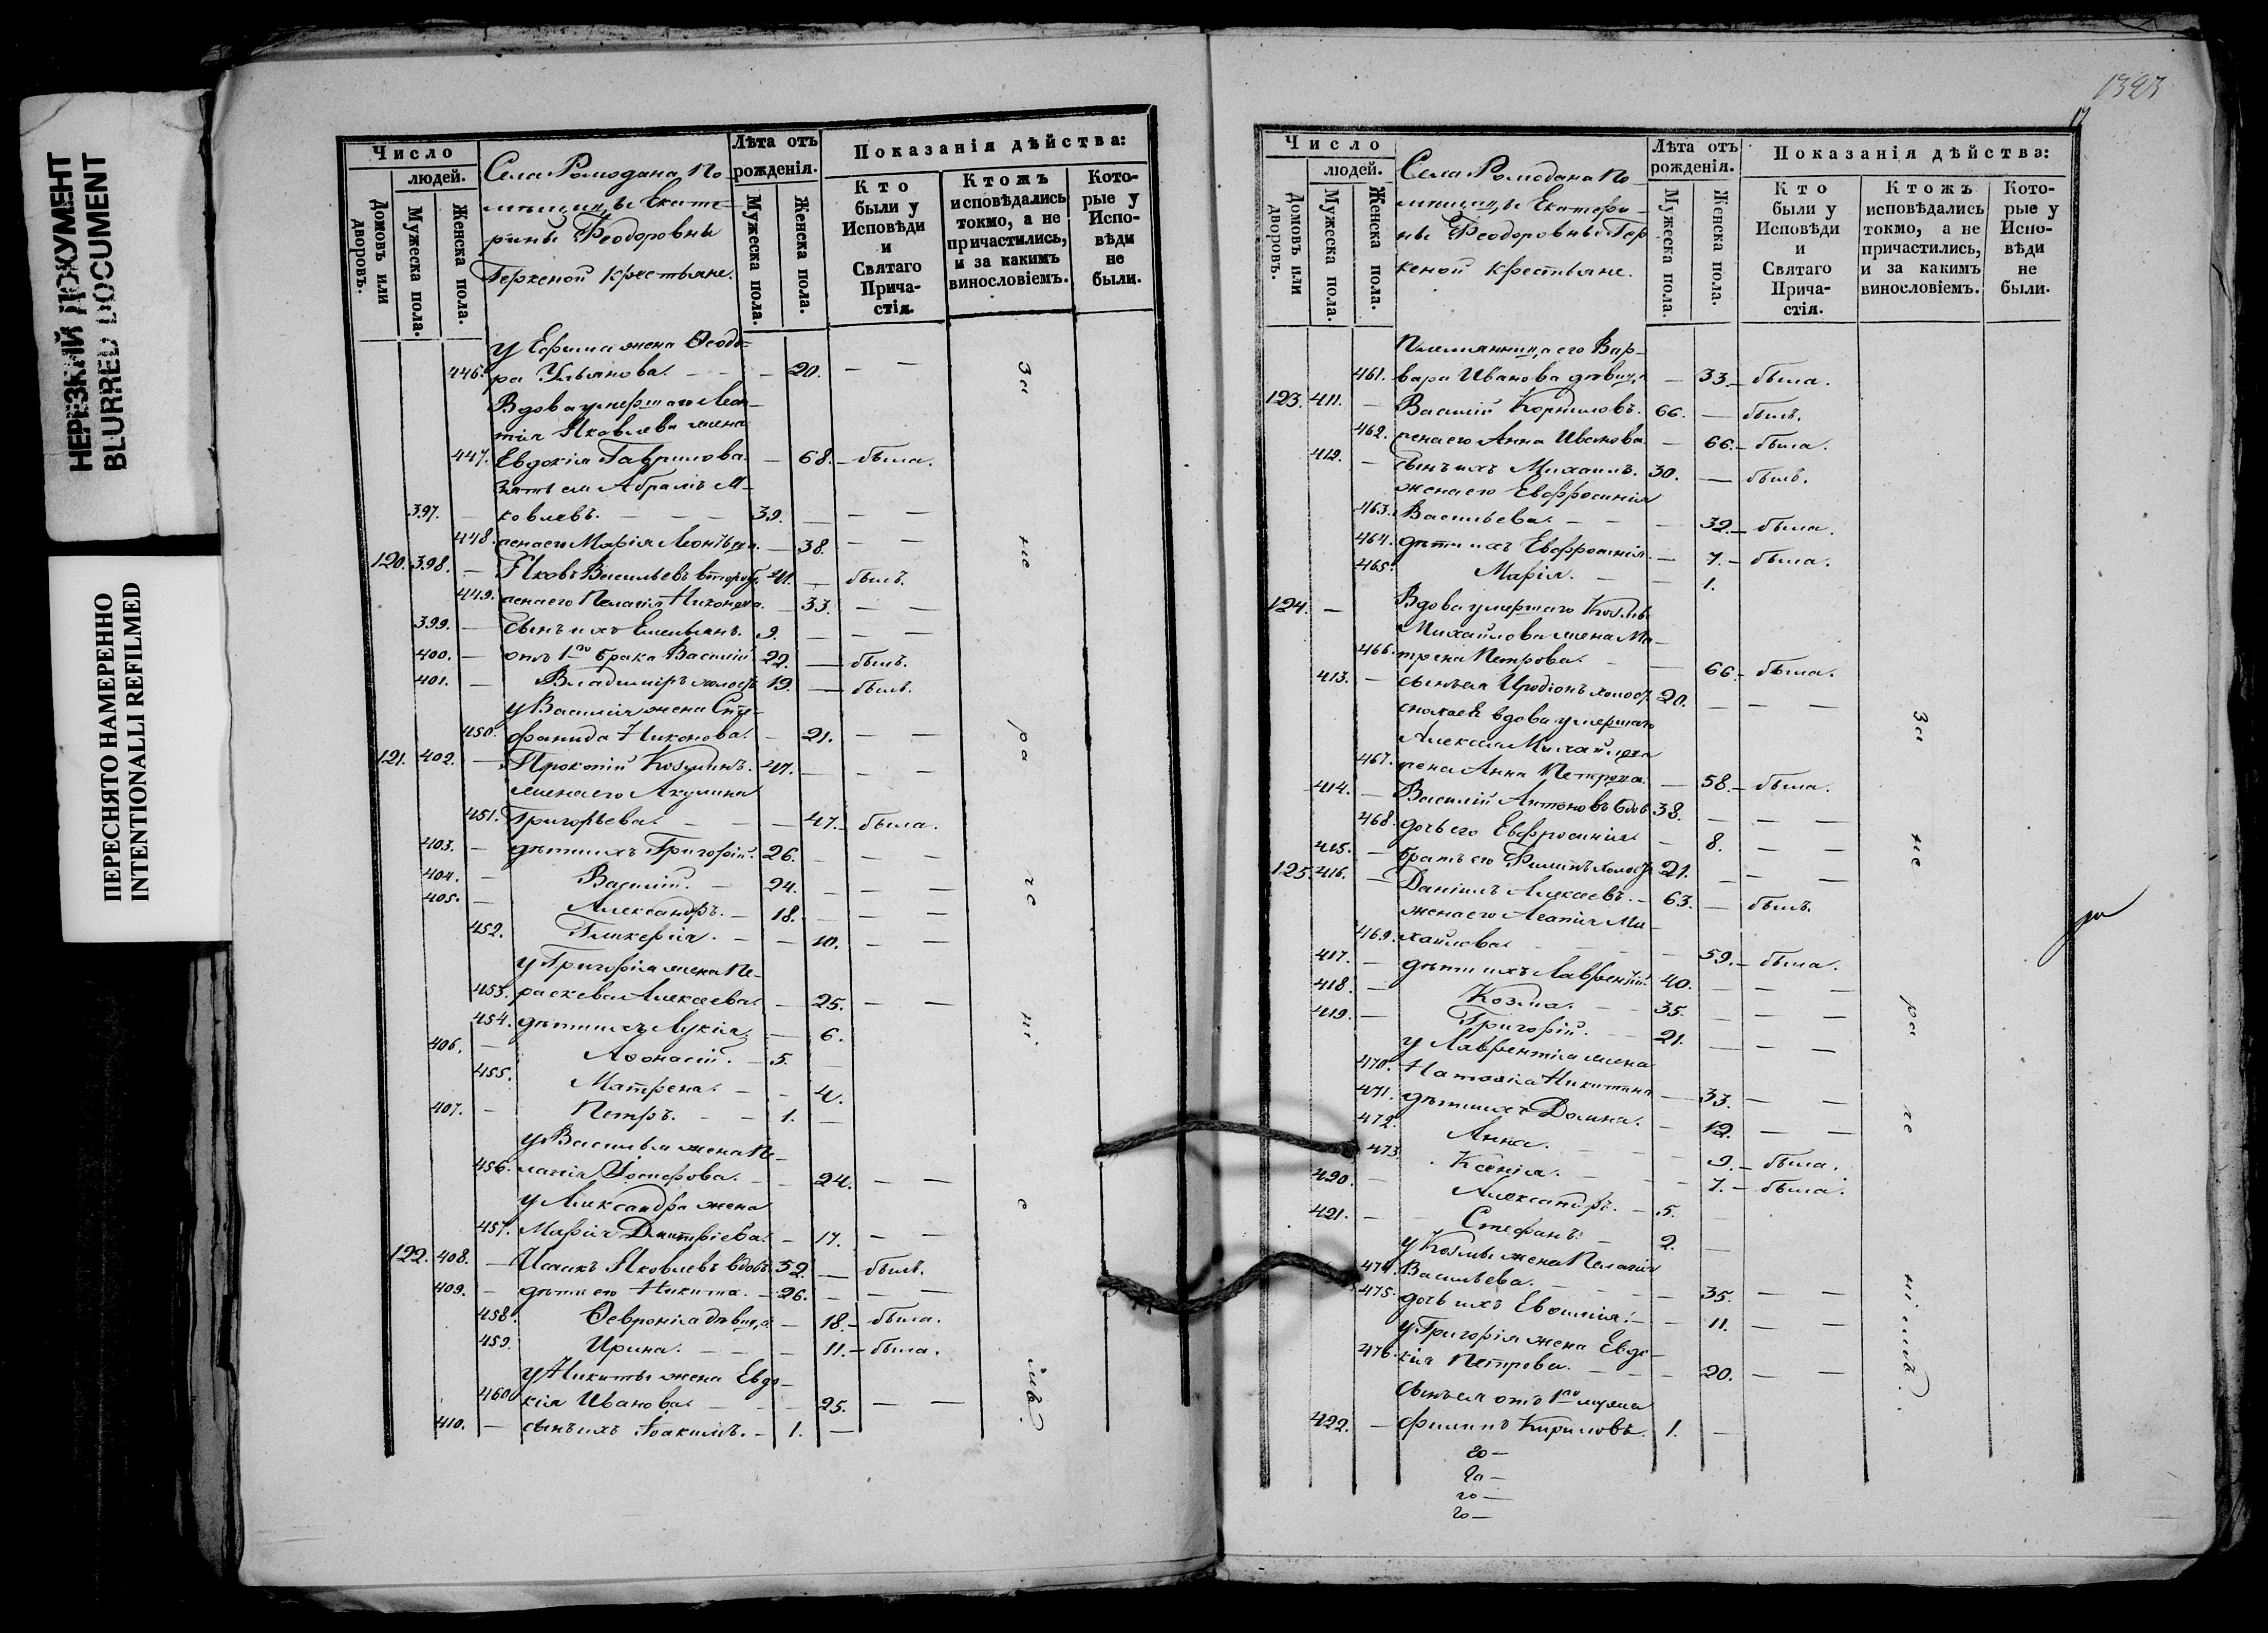 НЕРЕЗКИЙ ДОКУМЕНТ
BLURRED DOCUMENT
ПЕРЕСНЯТО НАМЕРЕННО
INTENTIONALLI REFILMED
Число
людей.
Домовъ или дворовъ.
Мужеска пола.
Женска пола.
Села Ромодана По-
мѣщицы Екате-
рины Ѳеодоровны
крестьяне.
Лѣта отъ рожденія.
Мужеска пола.
Женска пола.
Показанія дѣйства:
Кто были у Исповѣди и Святаго Прича-стія.
Ктожъ исповѣдались токмо, а не причастились, и за какимъ винословіемъ.
Кото-рые у Испо-вѣди не были.
у Ефима жена Ѳеодо-
446. ра Ульянова. — — 20. — —
Вдова умершаго Леон-
тія Яковлева жена
447. Евдокія Гаврилова. — 68. — была.
Зять ея Абрамъ Я-
397. — ковлевъ. — — — 39. — — —
448. жена его Марія Леонтьева. — 38. — —
120. 398. — Яковъ Васильевъ 41. — былъ.
449. жена его Пелагія Никонова. — 33. — —
399. — сынъ ихъ Емельянъ. 9. — — —
400. — отъ 1го брака Василій 22. — былъ.
401. — Владиміръ холостъ 19. — былъ.
у Василія жена Сте-
450. фанида Никонова. — 21. — —
121. 402. — Прокопій Козминъ. 47. — — —
жена его Акулина
451. Григорьева. — — — 47. — была.
403. — дѣти ихъ Григорій. 26. — — —
404. — Василій. — 24. — — —
405. — Александръ. — 18. — — —
452. Гликерія. — — 10. — —
у Григорія жена Па-
453. раскева Алексеева. — 25. — —
454. дѣти ихъ Лукія. — 6.
406. — Афонасій. — 5. —
455. Матрена. — — 4.
407. — Петръ. — — 1. —
у Василья жена Пе-
456. лагія Іосифова. — — 24. — —
у Александра жена
457. Марія Дмитріева. — 17. — —
122. 408. — Исаакъ Яковлевъ вдовъ. 52. — былъ.
409. — дѣти его Никита. — 26. — — —
458. Ѳевронія дѣвица — 18. — была.
459. Ирина. — — — 11. — была.
у Никиты жена Евдо-
460. кія Иванова. — — — 25. — —
410. — сынъ ихъ Іоакимъ. — 1. —
за не ра че ні е мъ.
1323
17
Число
людей.
Домовъ или дворовъ.
Мужеска пола.
Женска пола.
Села Ромодана По-
мѣщицы Екатери-
ны Ѳеодоровны
крестьяне.
Лѣта отъ рожденія.
Мужеска пола.
Женска пола.
Показанія дѣйства:
Кто были у Исповѣди и Святаго Прича-стія.
Ктожъ исповѣдались токмо, а не причастились, и за какимъ винословіемъ.
Кото-рые у Испо-вѣди не были.
Племянница его Вар-
461. вара Иванова дѣвица — 33. — была.
123. 411. — Василій Корниловъ. 66. — былъ.
462. жена его Анна Иванова. — 66. — была.
412. — сынъ ихъ Михаилъ. 30. — былъ.
жена его Евфросинія
463. Васильева. — — — 32. — была.
464. дѣти ихъ Евфросинія. — 7. — была.
465. Марія. — — 1.
124. — Вдова умершаго Козмы
Михайлова жена Ма-
466. трена Петрова. — — 66. — была.
413. — сынъ ея Иродіонъ холос. 20. — — —
сноха ея вдова умершаго
Алексея Михайлова
467. жена Анна Петрова. — 58. — была.
414. — Василій Антоновъ вдов. 38. — — —
468. дочь его Евфросинія. — 8. — —
415. — братъ его Филипъ холос. 21. — — —
125. 416. — Даніилъ Алексеевъ. — 63. — былъ.
жена его Агапія Ми-
469. хайлова. — — — 59. — была.
417. — дѣти ихъ Лаврентій. 40. — — —
418. — Козма. — — 35. — — —
419. — Григорій. — 21. — — —
у Лаврентія жена
470. Наталія Никитина — 33. — —
471. дѣти ихъ Домна. — 12. — —
472. Анна. — — — 9. — была.
473. Ксенія. — — — 7. — была.
420. — Александръ. — 5. —
421. — Стефанъ. — 2. —
у Козмы жена Пелагія
474. Васильева. — — — 35. — —
475. дочь ихъ Евфимія. — — 11. — —
у Григорія жена Евдо-
476. кія Петрова. — — — 20. — —
сынъ ея отъ 1го мужа
422. — Филипъ Кириловъ. 1. —
20 —
20 —
20 —
20 —
за не ра че ніемъ.